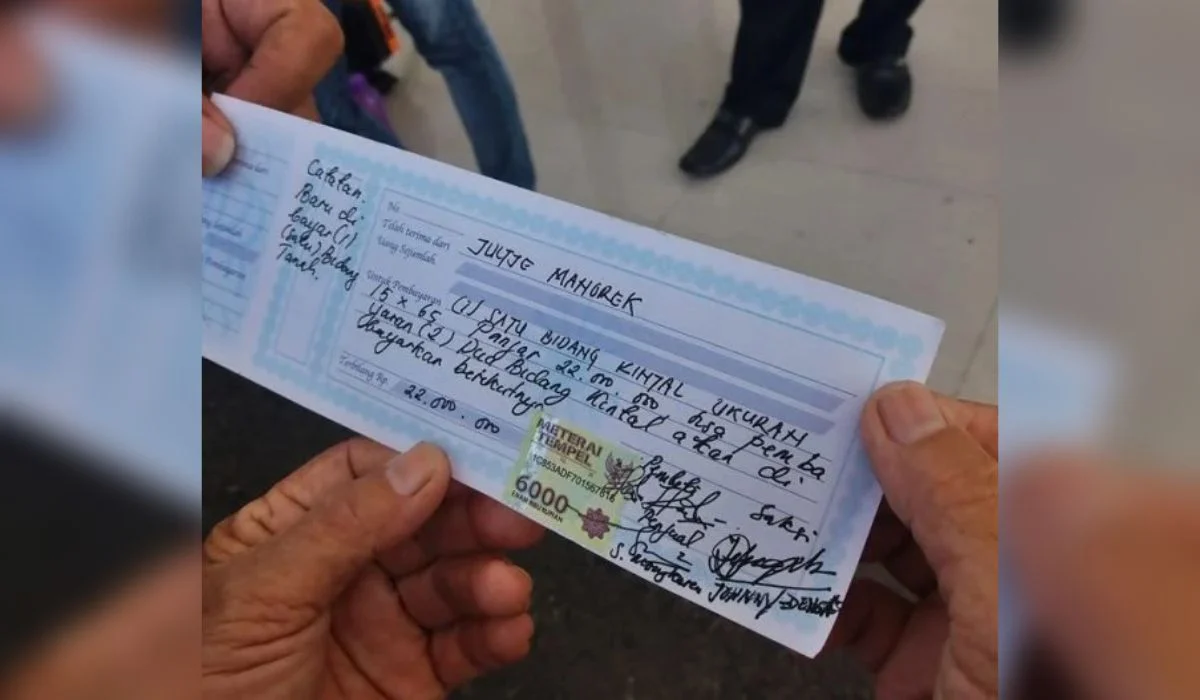 Catatan.
Baru di
bayar (1)
(satu) Bidang
Tanah.
No
Telah terima dari JULTJE MANOREK
Uang Sejumlah
Untuk Pembayaran (1) SATU BIDANG KINTAL UKURAN
15 x 65 Panjar 22.000.000 pemba
yaran (2) Dua Bidang Kintal akan di
bayarkan berikutnya
Terbilang Rp. 22.000.000
METERAI
TEMPEL
6000
ENAM RIBU RUPIAH
Pembeli Saksi
Penjual
JOHNNY